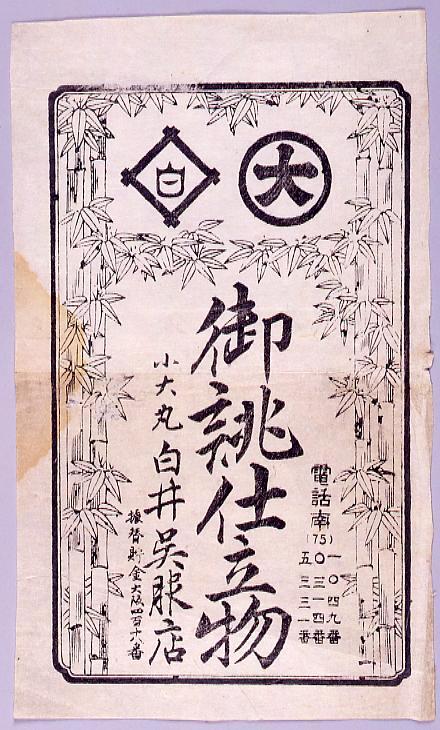 大
白
電話南(75)
一〇四九番
〇三一四番
五三三一番
御誂仕立物
小大丸 白井呉服店
振替貯金大阪四百十八番